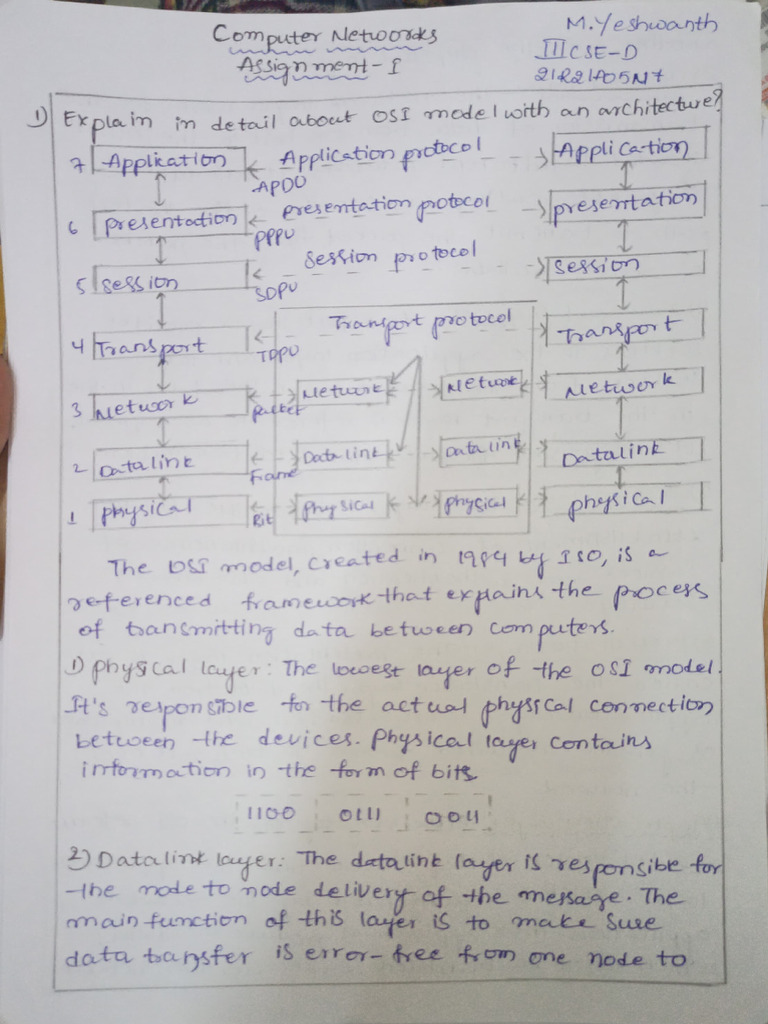 Computer Networks
Assignment-I
M.Yeshwanth
III CSE-D
21R21A05N7
1) Explain in detail about OSI model with an architecture?
7 Application Application protocol Application
APDU
6 presentation presentation protocol presentation
PPPU
5 Session Session protocol Session
SDPU
4 Transport Transport protocol Transport
TDPU
3 Network Network Network Network
packet
2 Datalink Datalink Datalink Datalink
Frame
1 physical physical physical physical
Bit
The OSI model, created in 1984 by ISO, is a
referenced framework that explains the process
of transmitting data between computers.
1) physical layer: The lowest layer of the OSI model.
It's responsible for the actual physical connection
between the devices. physical layer contains
information in the form of bits
1100 0111 0011
2) Datalink layer: The datalink layer is responsible for
the node to node delivery of the message. The
main function of this layer is to make sure
data transfer is error-free from one node to